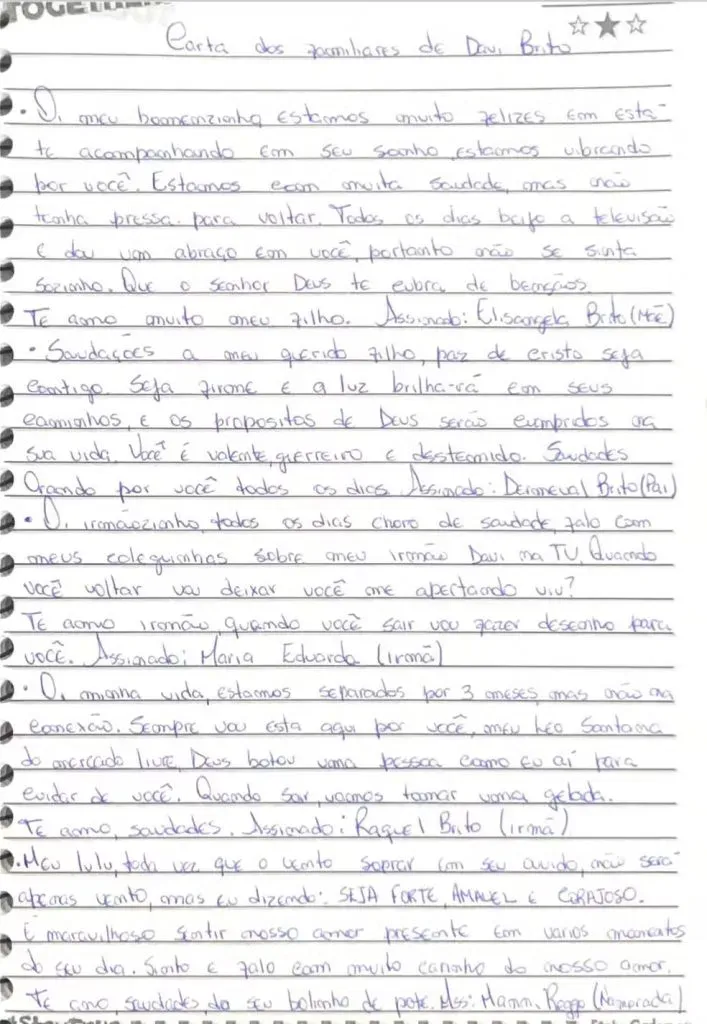 TOGETHER
Carta dos familiares de Davi Brito
• Oi meu homenzinho, estamos muito felizes em está
te acompanhando em seu sonho, estamos vibrando
por você. Estamos com muita saudade, mas não
tenha pressa para voltar. Todos os dias beijo a televisão
e dou um abraço em você, portanto não se sinta
sozinho. Que o senhor Deus te cubra de bençãos.
Te amo muito meu filho. Assinado: Elisangela Brito (Mãe)
• Saudações a meu querido filho, paz de cristo seja
contigo. Seja firme e a luz brilha-rá em seus
caminhos, e os propositos de Deus serão cumpridos na
sua vida. Você é valente, guerreiro e destemido. Saudades
Orando por você todos os dias. Assinado: Deromeval Brito (Pai)
• Oi, irmãozinho, todos os dias choro de saudade, falo com
meus coleguinhas sobre meu irmão Davi na TV. Quando
você voltar vou deixar você me apertando viu?
Te amo irmão, quando você sair vou fazer desenho para
você. Assinado: Maria Eduarda (irmã)
• Oi, minha vida, estamos separados por 3 meses, mas não na
conexão. Sempre vou esta aqui por você, meu Léo Santana
do mercado livre, Deus botou uma pessoa como eu aí para
cuidar de você. Quando sair, vamos tomar uma gelada.
Te amo, saudades. Assinado: Raquel Brito (irmã)
• Meu lulu, toda vez que o vento soprar em seu ouvido, não será
apenas vento, mas eu dizendo: SEJA FORTE, AMAVEL E CORAJOSO.
É maravilhoso sentir nosso amor presente em varios momentos
do seu dia. Sinto e falo com muito carinho do nosso amor.
Te amo, saudades, do seu bolinho de pote. Ass: Mann, Rego (Namorada)